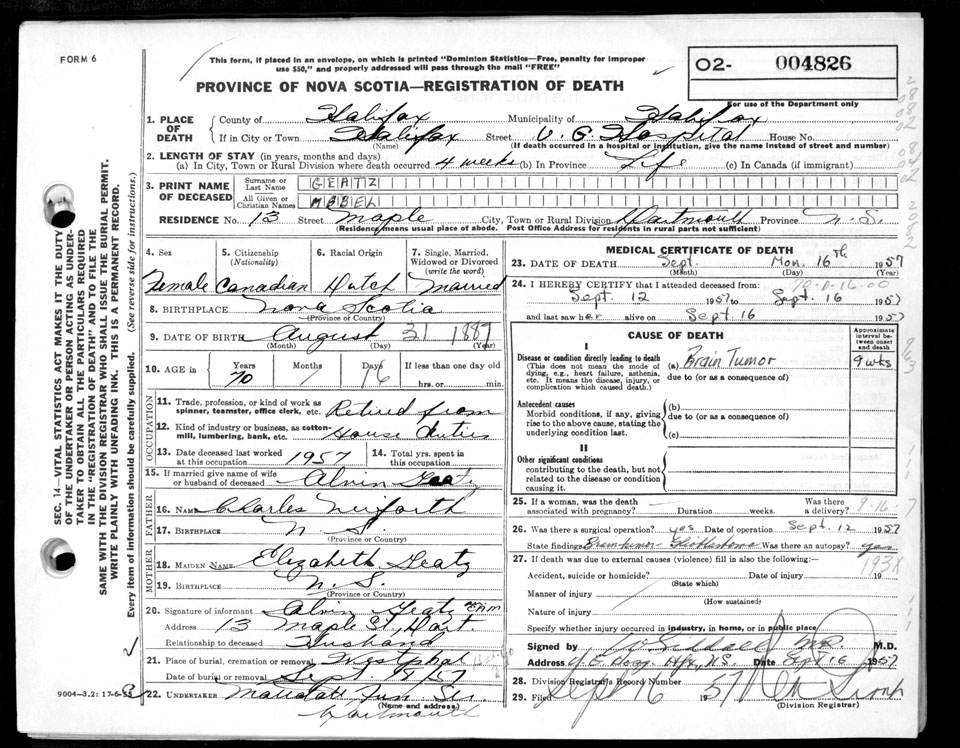 FORM 6
This form, if placed in an envelope, on which is printed "Dominion Statistics—Free, penalty for improper
use $50," and properly addressed will pass through the mail "FREE"
O2- 004826
For use of the Department only
PROVINCE OF NOVA SCOTIA—REGISTRATION OF DEATH
1. PLACE OF DEATH County of Halifax Municipality of Halifax
If in City or Town Halifax Street V. G. Hospital House No.
(Name) (If death occurred in a hospital or institution, give the name instead of street and number)
2. LENGTH OF STAY (in years, months and days)
(a) In City, Town or Rural Division where death occurred 4 weeks (b) In Province Life (c) In Canada (if immigrant)
3. PRINT NAME OF DECEASED Surname or Last Name GEATZ
All Given or Christian Names MABEL
RESIDENCE No. 13 Street Maple City, Town or Rural Division Dartmouth Province N.S.
(Residence means usual place of abode. Post Office Address for residents in rural parts not sufficient)
4. Sex 5. Citizenship (Nationality) 6. Racial Origin 7. Single, Married, Widowed or Divorced (write the word)
Female Canadian Dutch Married
8. BIRTHPLACE Nova Scotia
(Province or Country)
9. DATE OF BIRTH August 31 1887
(Month) (Day) (Year)
10. AGE in Years Months Days If less than one day old
70 16 hrs. or min.
OCCUPATION
11. Trade, profession, or kind of work as spinner, teamster, office clerk, etc. Retired from
12. Kind of industry or business, as cotton-mill, lumbering, bank, etc. House duties
13. Date deceased last worked at this occupation 1957 14. Total yrs. spent in this occupation
15. If married give name of wife or husband of deceased Alvin Geatz
FATHER
16. NAME Charles
17. BIRTHPLACE N.S.
(Province or Country)
MOTHER
18. MAIDEN NAME Elizabeth Geatz
19. BIRTHPLACE N.S.
(Province or Country)
20. Signature of informant Alvin Geatz
Address 13 Maple St., Dart.
Relationship to deceased Husband
21. Place of burial, cremation or removal Westphal
Date of burial or removal Sept. 18/57
22. UNDERTAKER Fun. Ser.
(Name and address)
Dartmouth
MEDICAL CERTIFICATE OF DEATH
23. DATE OF DEATH Sept. Mon. 16th 1957
(Month) (Day) (Year)
24. I HEREBY CERTIFY that I attended deceased from:
Sept. 12 1957 to Sept. 16 1957
and last saw her alive on Sept. 16 1957
CAUSE OF DEATH
Approximate interval between onset and death
I
Disease or condition directly leading to death (a) Brain Tumor 9 wks
(This does not mean the mode of dying, e.g., heart failure, asthenia, etc. It means the disease, injury, or complication which caused death.) due to (or as a consequence of)
Antecedent causes (b)
Morbid conditions, if any, giving rise to the above cause, stating the underlying condition last. due to (or as a consequence of)
(c)
II
Other significant conditions
contributing to the death, but not related to the disease or condition causing it.
25. If a woman, was the death associated with pregnancy? — Duration weeks. Was there a delivery?
26. Was there a surgical operation? yes Date of operation Sept. 12 1957
State findings Brain tumor - Was there an autopsy? yes
27. If death was due to external causes (violence) fill in also the following:—
193X
Accident, suicide or homicide? Date of injury 19
(State which)
Manner of injury
(How sustained)
Nature of injury
Specify whether injury occurred in industry, in home, or in public place
Signed by M.D.
Address Hfx, N.S. Date Sept 16 1957
28. Division Registrar's Record Number
29. Filed Sept 16 1957
(Division Registrar)
SEC. 14—VITAL STATISTICS ACT MAKES IT THE DUTY
OF THE UNDERTAKER OR PERSON ACTING AS UNDER-
TAKER TO OBTAIN ALL THE PARTICULARS REQUIRED
IN THE "REGISTRATION OF DEATH" AND TO FILE THE
SAME WITH THE DIVISION REGISTRAR WHO SHALL ISSUE THE BURIAL PERMIT.
WRITE PLAINLY WITH UNFADING INK. THIS IS A PERMANENT RECORD.
Every item of information should be carefully supplied. (See reverse side for instructions.)
9004-3.2: 17-6-53